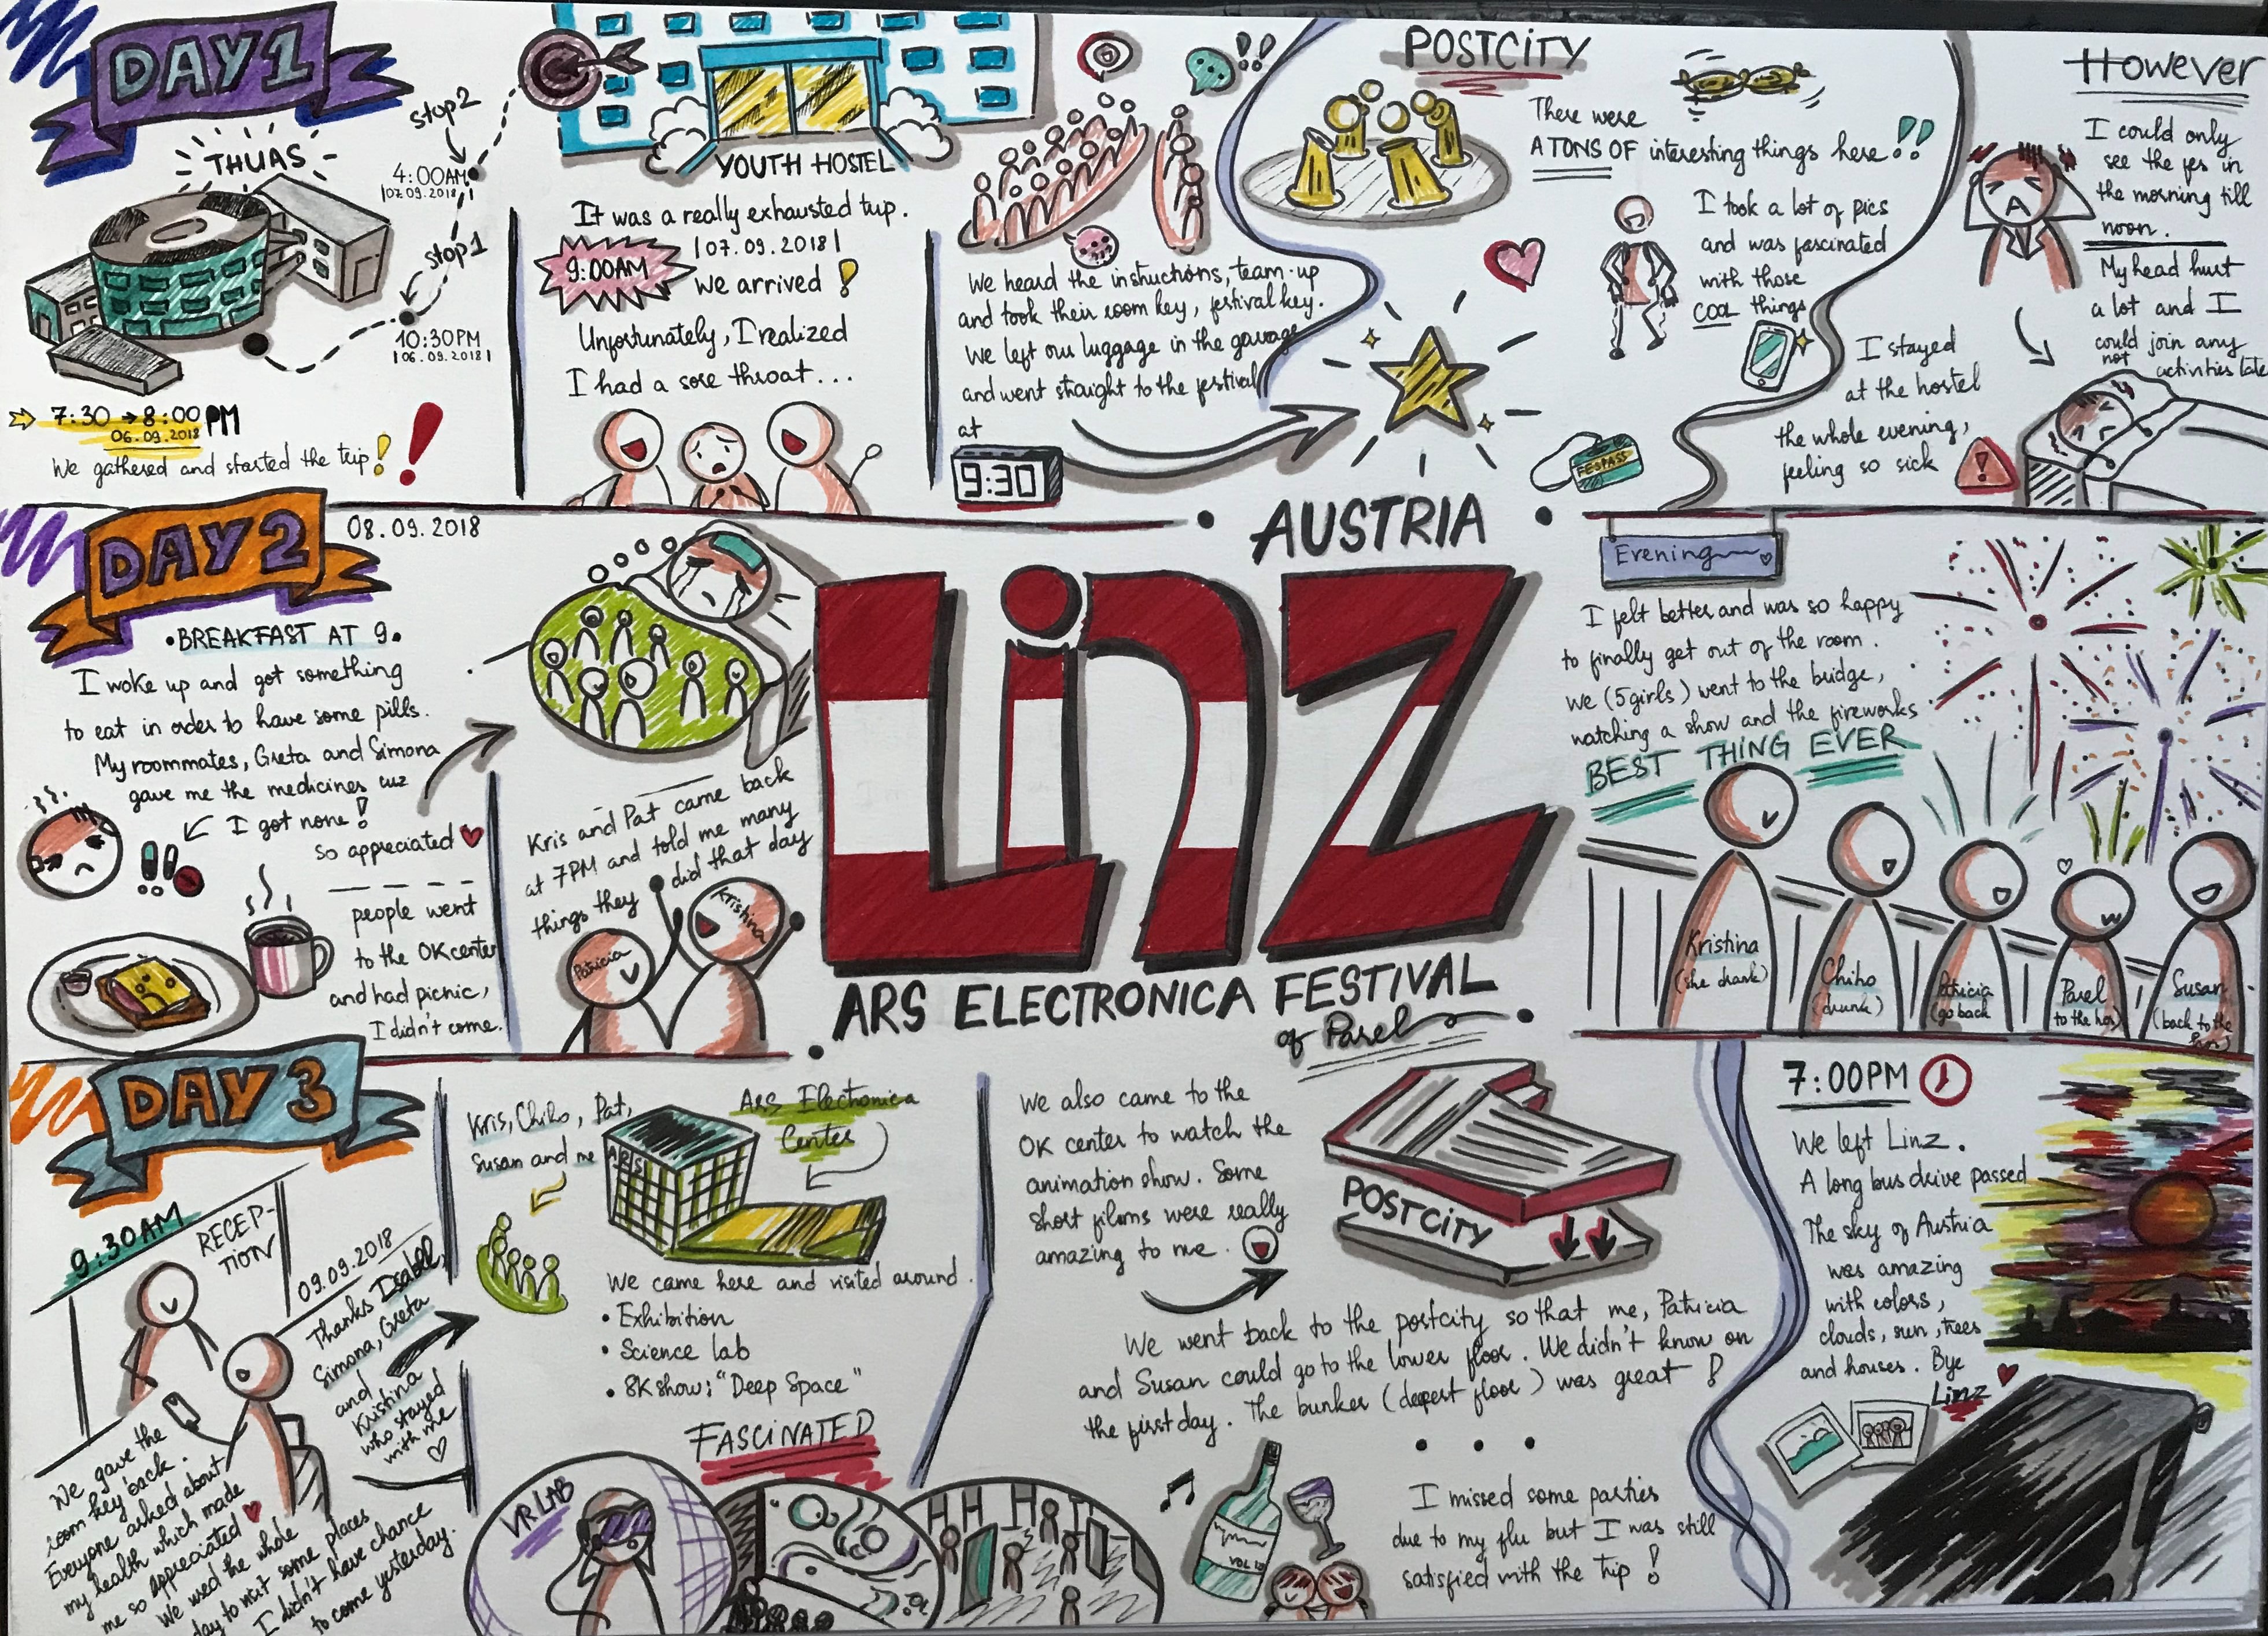 DAY 1
THUAS
stop 2
4:00AM
|07.09.2018|
stop 1
10:30PM
|06.09.2018|
7:30 → 8:00 PM
06.09.2018
We gathered and started the trip!
YOUTH HOSTEL
It was a really exhausted trip.
|07.09.2018|
9:00AM
We arrived!
Unfortunately, I realized
I had a sore throat...
We heard the instructions, team-up
and took their room key, festival key.
We left our luggage in the garage
and went straight to the festival
at
9:30
POSTCITY
There were
A TONS OF interesting things here!!
I took a lot of pics
and was fascinated
with those
COOL things
FESPASS
However
I could only
see the fes in
the morning till
noon.
My head hurt
a lot and I
could join any
not activities late
I stayed
at the hostel
the whole evening,
feeling so sick
DAY 2
08.09.2018
•BREAKFAST AT 9•
I woke up and got something
to eat in order to have some pills.
My roommates, Greta and Simona
gave me the medicines cuz
I got none!
so appreciated
people went
to the OK center
and had picnic,
I didn't come.
Kris and Pat came back
at 7PM and told me many
things they did that day
Patricia
Kristina
AUSTRIA
LiNZ
ARS ELECTRONICA FESTIVAL
of Parel
Evening
I felt better and was so happy
to finally get out of the room.
We (5 girls) went to the bridge,
watching a show and the fireworks
BEST THING EVER
Kristina
(she drank)
Chiho
(drunk)
Patricia
(go back
Parel
to the hos)
Susan
(back to the
DAY 3
9:30AM
RECEP-
TION
09.09.2018
Thanks Isabel,
Simona, Greta
and
Kristina
who stayed
with me
We gave the
room key back.
Everyone asked about
my health which made
me so appreciated
We used the whole
day to visit some places
I didn't have chance
to come yesterday.
Kris, Chiho, Pat,
Susan and me
ARS
Ars Electronica
Center
We came here and visited around.
• Exhibition
• Science lab
• 8K show: "Deep Space"
FASCINATED
VR LAB
We also came to the
OK center to watch the
animation show. Some
short films were really
amazing to me.
POSTCITY
We went back to the postcity so that me, Patricia
and Susan could go to the lower floor. We didn't know on
the first day. The bunker (deepest floor) was great!
I missed some parties
due to my flu but I was still
satisfied with the trip!
7:00PM
We left Linz.
A long bus drive passed
The sky of Austria
was amazing
with colors,
clouds, sun, trees
and houses. Bye
Linz